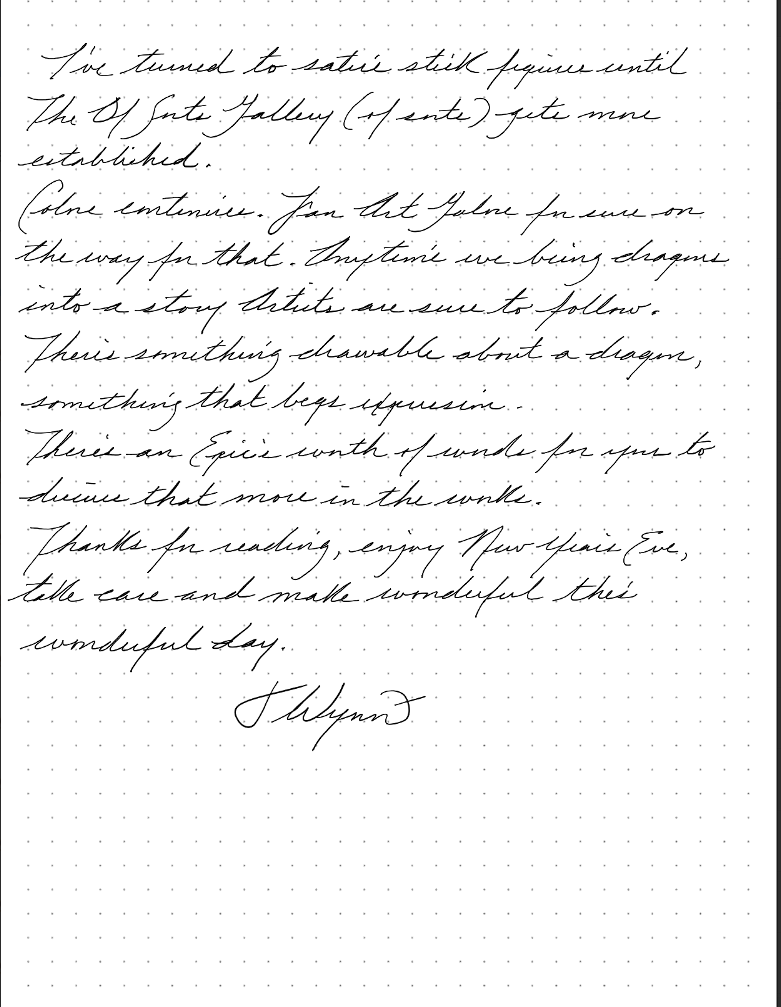 I've turned to satire stick figures until
The Of Sorts Gallery (of sorts) gets more
established.
continues. Fan Art Galore for sure on
the way for that. Anytime we bring dragons
into a story Artists are sure to follow.
There's something drawable about a dragon,
something that begs expression.
There's an Epic's worth of words for you to
that more in the works.
Thanks for reading, enjoy New Years Eve,
take care and make wonderful this
wonderful day.
J Wynn